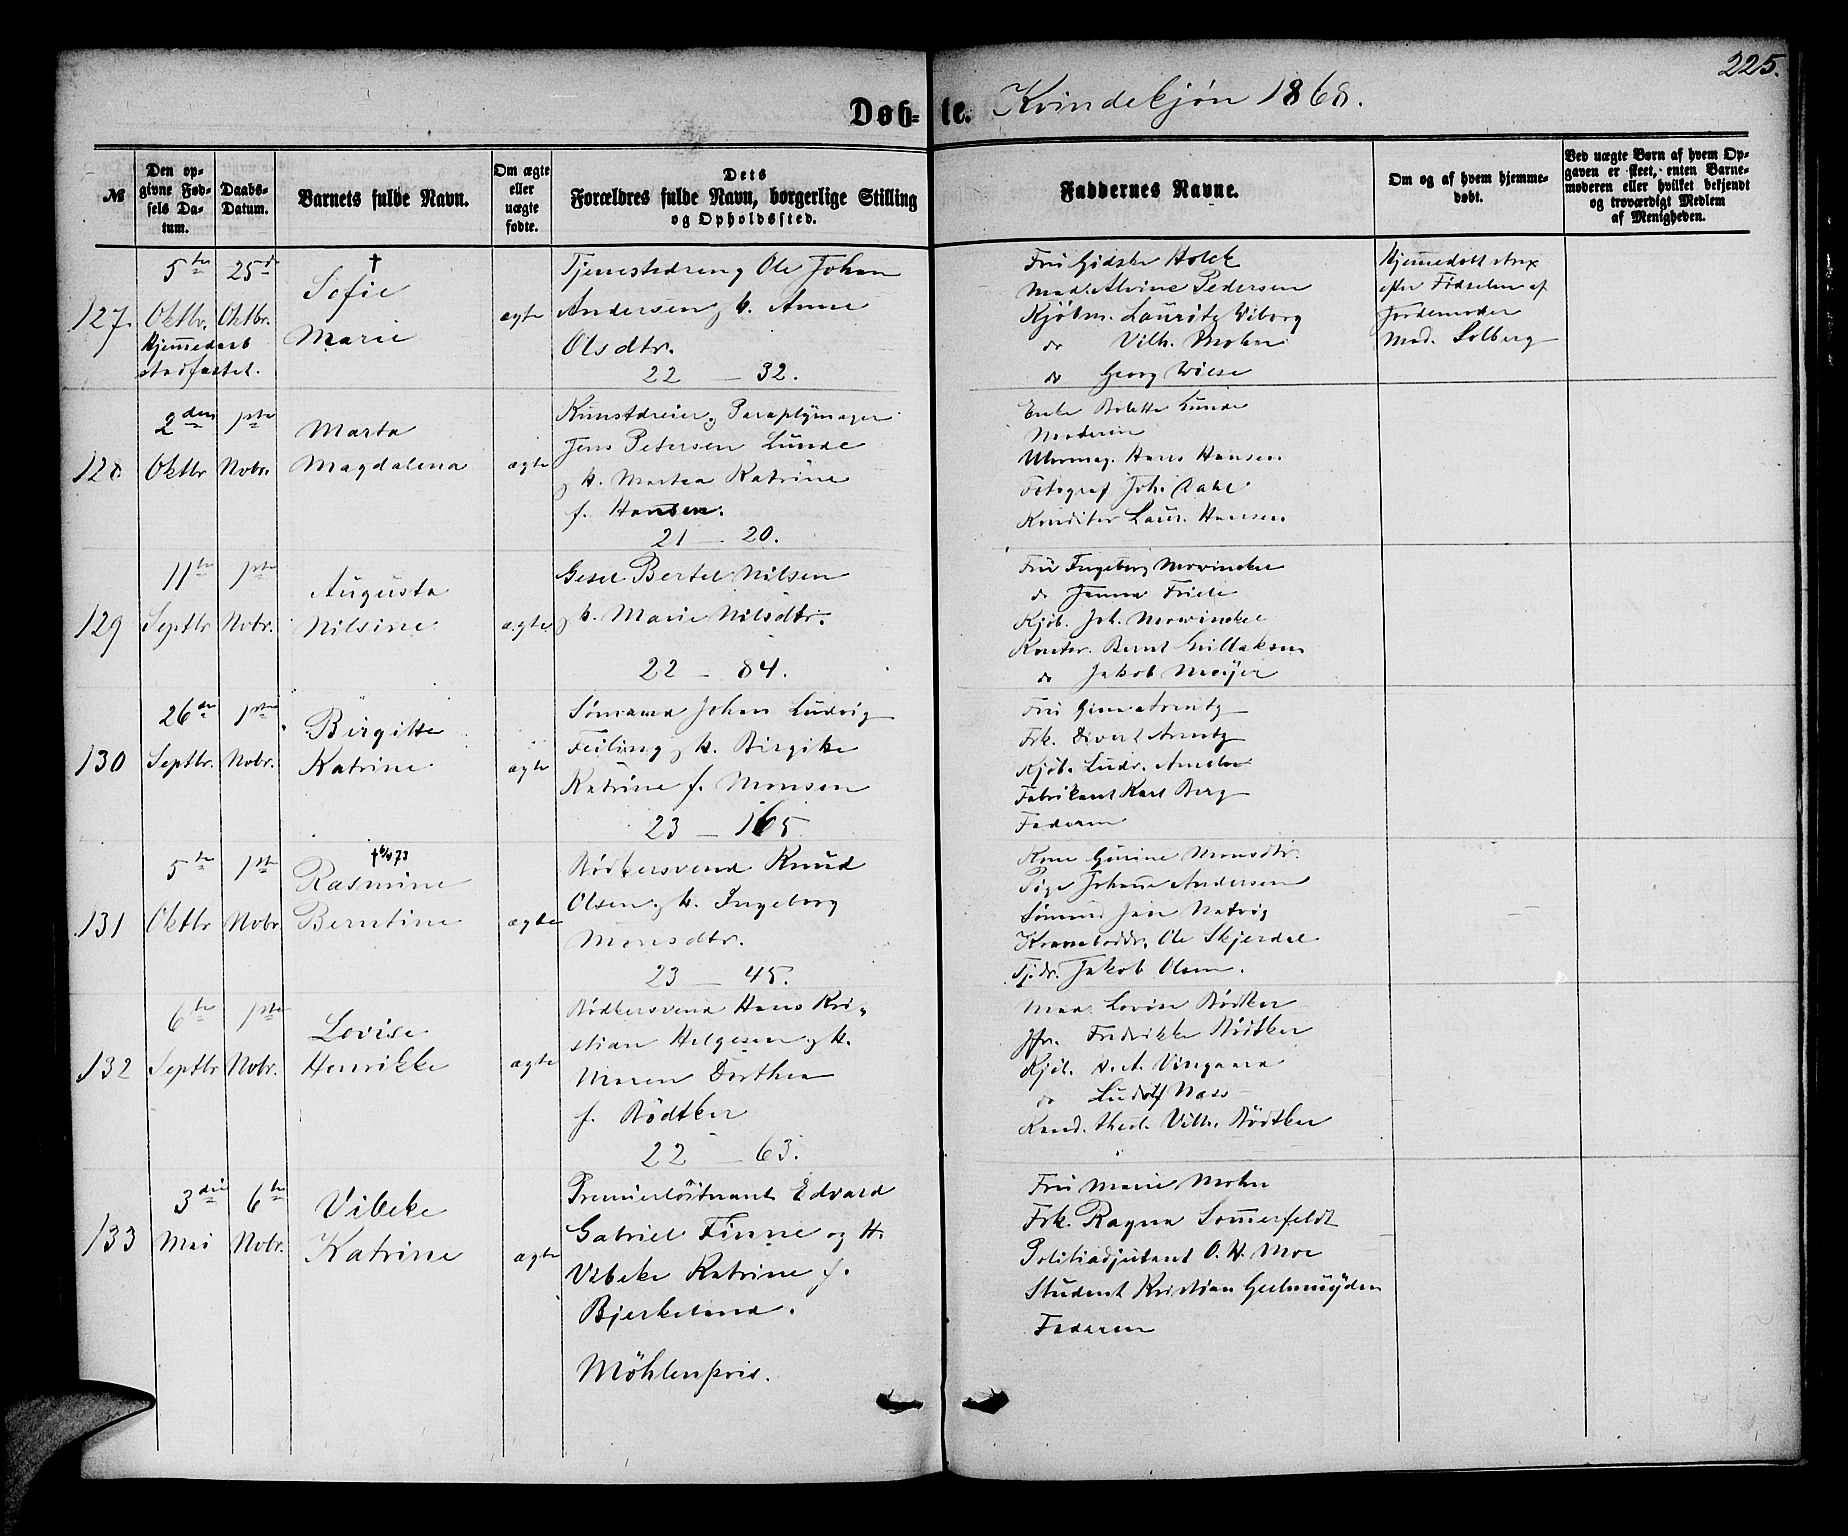 225.
Døb-te. Kvindekjøn 1868.
№
Den op-
givne Fød-
sels Da-
tum.
Daabs-
Datum.
Barnets fulde Navn.
Om ægte
eller
uægte
fødte.
Dets
Forældres fulde Navn, borgerlige Stilling
og Opholdssted.
Faddernes Navne.
Om og af hvem hjemme-
døbt.
Ved uægte Børn af hvem Op-
gaven er skeet, enten Barne-
moderen eller hvilket bekjendt
og troværdigt Medlem
af Menigheden.
127.
5te
Oktbr.
Hjemmedaab
stadfæstet.
25de
Oktbr.
†
Sofie
Marie
ægte
Tjenestedreng Ole Johan
Andersen og H. Anne
Olsdtr.
22 — 32.
Fru Gidske Holck
Mad. Alvine Pedersen
Kjøbm. Lauritz Wiborg
do Vilh. Mohn
do Georg Wiese
Hjemmedøbt strax
efter Fødselen af
Jordemoder
Mad. Solberg
128.
2den
Oktbr
1ste
Nobr.
Marta
Magdalena
ægte
Kunstdreier og Paraplymager
Jens Petersen Lunde
og H. Martha Katrine
f. Hansen.
21 — 20.
Enke Bolette Lunde
Moderen
Uhrmag. Hans Hansen
Fotograf Joh. Dahl
Konditor Laur. Hansen
129
11te
Septbr
1ste
Nobr.
Augusta
Nilsine
ægte
Gesel Bertel Nilsen
og H. Marie Nilsdtr.
22 — 84.
Fru Ingeborg Mowinckel
do Janna Friele
Kjøb. Joh. Mowinckel
Kontor. Bernt Gullaksen
do Jakob Meijer
130
26de
Septbr.
1ste
Nobr.
Birgitte
Katrine
ægte
Sømand Johan Ludvig
Feiling og H. Birgitte
Katrine f. Monsen
23 — 165
Fru Gina Arentz
Frk. Divert Arentz
Kjøb. Ludv.
Fabrikant Karl Berg
Faderen
131
5te
Oktbr
1ste
Nobr
† 6/4 73
Rasmine
Berntine
ægte
Bødkersvend Knud
Olsen og H. Ingeborg
Monsdtr.
23 — 45.
Kone Gurine Monsdtr.
Pige Johanne Andersen
Sømand Jan Natvig
Ole Skjerdal
Tjdr. Jakob Olsen.
132
6te
Septbr
1ste
Nobr.
Lovise
Henrikke
ægte
Bødkersvend Hans Kri-
stian Helgesen og H.
Maren Dorthea
f. Bødtker
22 — 63.
Mad. Lovise Bødtker
Jfr. Fredrikke Bødtker
Kjøb. Vingaard
do Ludolf Nass
Kand. theol. Vilh. Bødtker
133
3die
Mai
6te
Nobr.
Vibeke
Katrine
ægte
Premierløitnant Edvard
Gabriel Finne og H.
Vibeke Katrine f.
Bjerkeland.
Möhlenpris.
Fru Marie Mohn
Frk. Ragna Sommerfeldt
Politiadjutant O. H. Moe
Student Kristian Geelmuÿden
Faderen